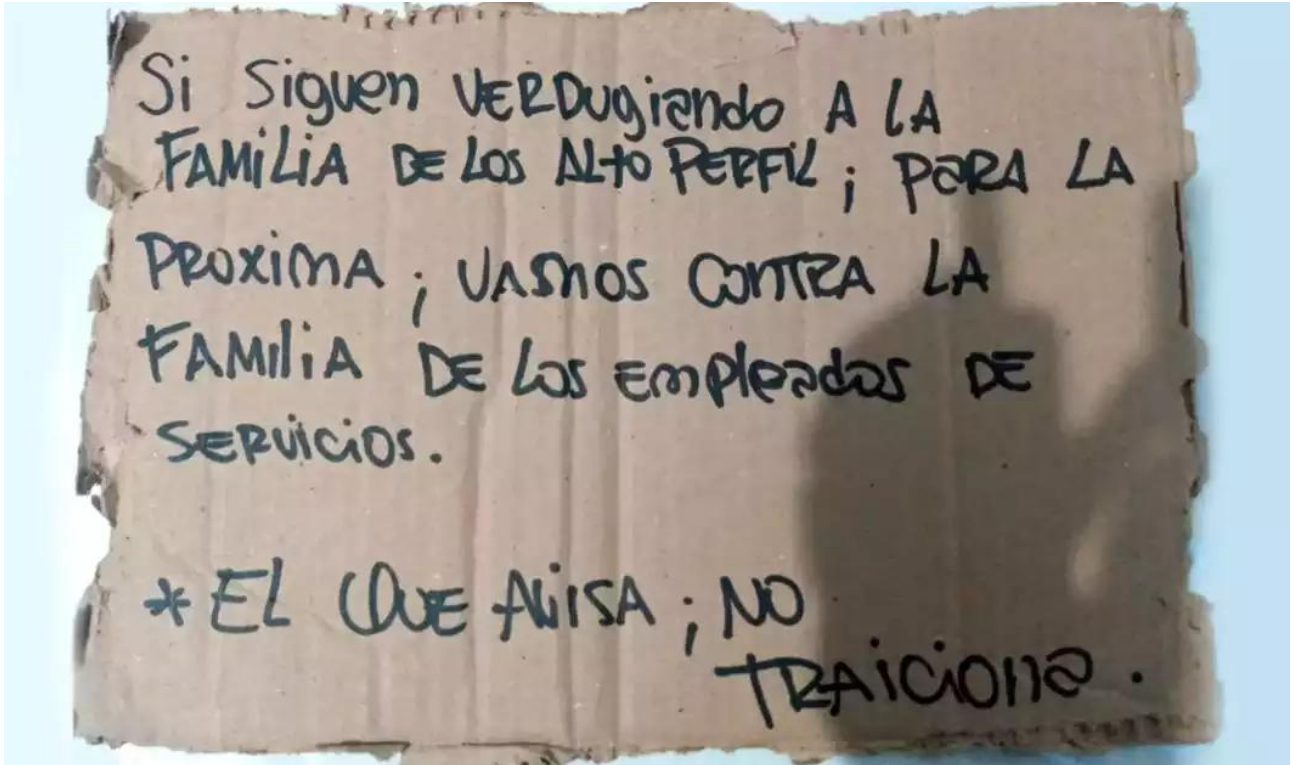 Si Siguen VERDugiando A LA
FAMILIA DE LOS ALTO PERFIL; PARA LA
PROXIMA; VAMOS CONTRA LA
FAMILIA DE LOS EMPLEADOS DE
SERVICIOS.
* EL QUE AVISA; NO
TRAICIONA.